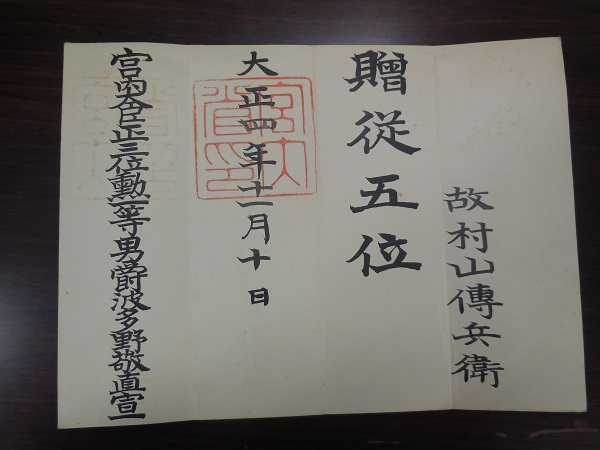 故村山傳兵衛
贈從五位
大正四年十一月十日
宮内大臣正三位勲一等男爵波多野敬直宣